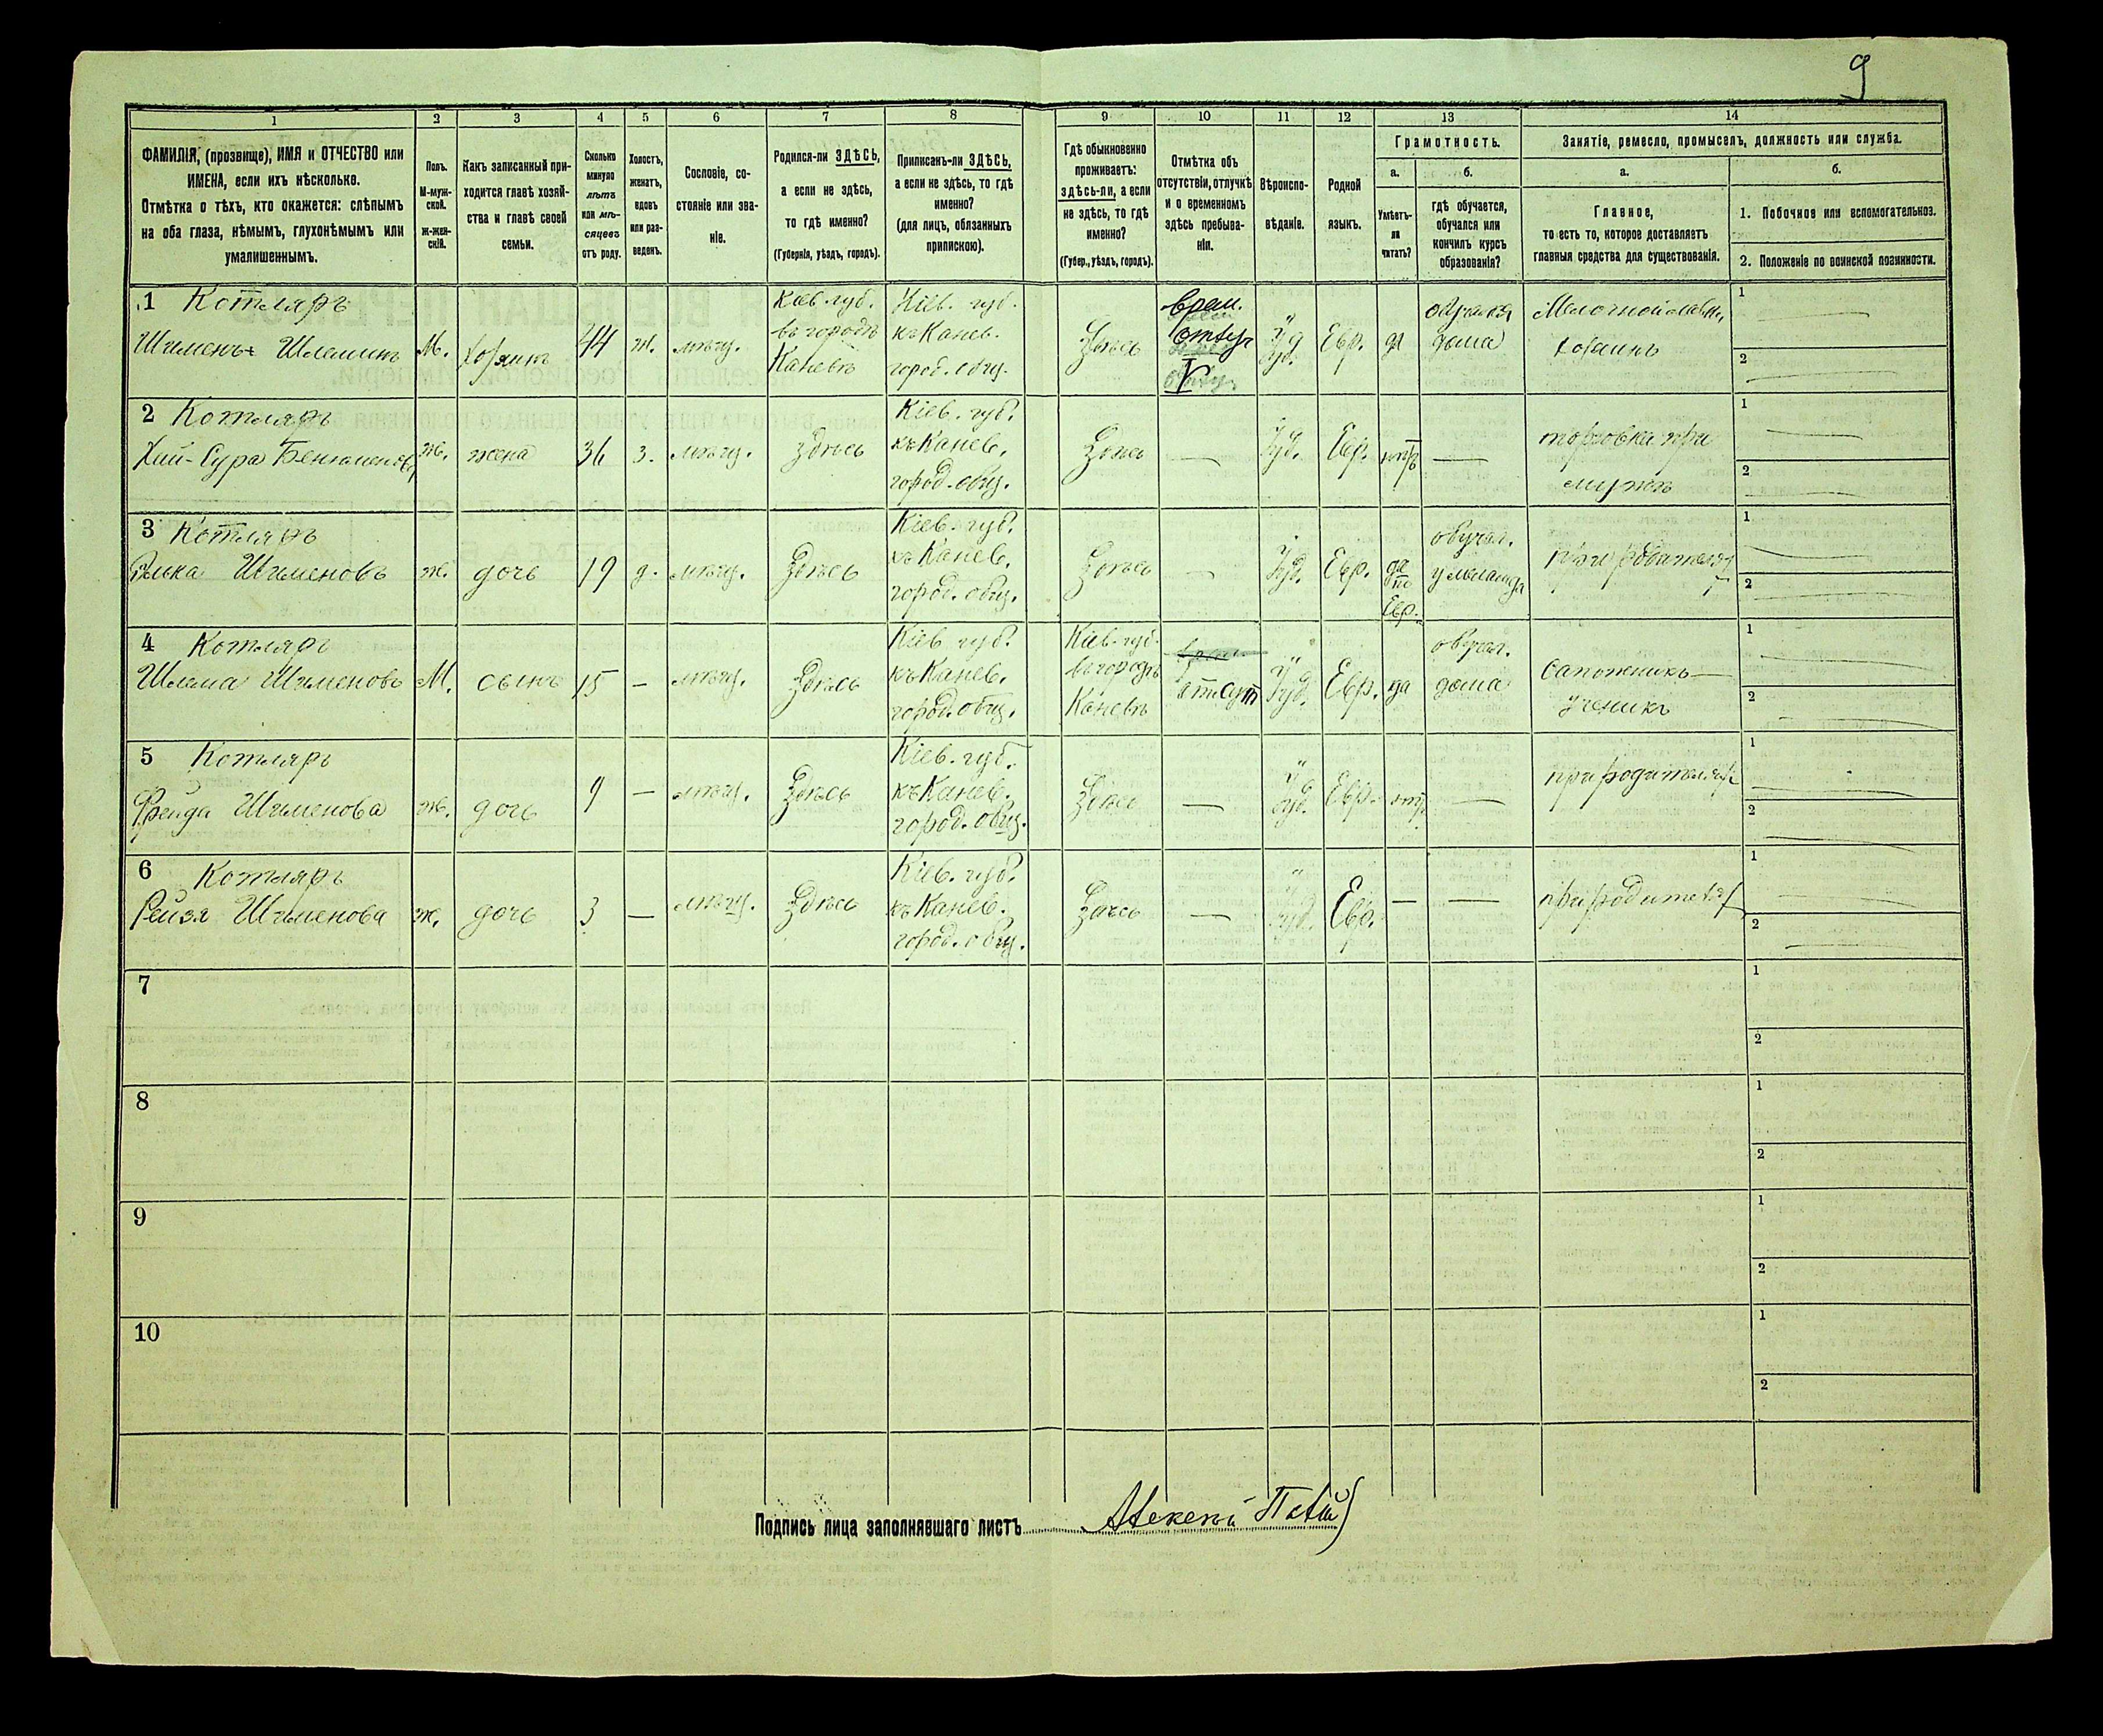 9
1
2
3
4
5
6
7
8
9
10
11
12
13
14
ФАМИЛІЯ, (прозвище), ИМЯ и ОТЧЕСТВО или
ИМЕНА, если ихъ нѣсколько.
Отмѣтка о тѣхъ, кто окажется: слѣпымъ
на оба глаза, нѣмымъ, глухонѣмымъ или
умалишеннымъ.
Полъ.
М-муж-
ской.
Ж-жен-
скій.
Какъ записанный при-
ходится главѣ хозяй-
ства и главѣ своей
семьи.
Сколько
минуло
лѣтъ
или мѣ-
сяцевъ
отъ роду.
Холостъ,
женатъ,
вдовъ
или раз-
веденъ.
Сословіе, со-
стояніе или зва-
ніе.
Родился-ли ЗДѢСЬ,
а если не здѣсь,
то гдѣ именно?
(Губернія, уѣздъ, городъ).
Приписанъ-ли ЗДѢСЬ,
а если не здѣсь, то гдѣ
именно?
(для лицъ, обязанныхъ
припискою).
Гдѣ обыкновенно
проживаетъ:
здѣсь-ли, а если
не здѣсь, то гдѣ
именно?
(Губер., уѣздъ, городъ).
Отмѣтка объ
отсутствіи, отлучкѣ
и о временномъ
здѣсь пребыва-
ніи.
Вѣроиспо-
вѣданіе.
Родной
языкъ.
Грамотность.
а.
Умѣетъ-
ли
читать?
б.
гдѣ обучается,
обучался или
кончилъ курсъ
образованія?
Занятіе, ремесло, промыселъ, должность или служба.
а.
Главное,
то есть то, которое доставляетъ
главныя средства для существованія.
б.
1. Побочное или вспомогательное.
2. Положеніе по воинской повинности.
1 Котляръ
Шименъ Шлемитъ М. хозяинъ 44 ж. мѣщ.
Кіев. губ.
въ городѣ
Каневѣ
Кіев. губ.
къ Канев.
город. общ.
Здѣсь
врем.
отлуч
Іуд. Евр. да
обучался
дома
Мелочной лавки
хозяинъ
1
2
2 Котляръ
Хая-Сура Бенюменова ж. жена 36 з. мѣщ. здѣсь
Кіев. губ.
къ Канев.
город. общ.
Здѣсь — Іуд. Евр. нѣтъ —
торговка при
мужѣ
1
2
3 Котляръ
Элька Шименовъ ж. дочь 19 д. мѣщ. Здѣсь
Кіев. губ.
къ Канев.
город. общ.
Здѣсь — Іуд. Евр.
да
по
Евр.
обучал.
у меламеда
при родителях
1
2
4 Котляръ
Шлема Шименовъ М. сынъ 15 — мѣщ. Здѣсь
Кіев. губ.
къ Канев.
город. общ.
Кіев. губ.
въ городѣ
Каневѣ
отсут Іуд. Евр. да
обучал.
дома
Сапожникъ
ученикъ
1
2
5 Котляръ
Фрейда Шименова ж. дочь 9 — мѣщ. Здѣсь
Кіев. губ.
къ Канев.
город. общ.
Здѣсь — Іуд. Евр. нѣтъ —
при родителях
1
2
6 Котляръ
Рейзя Шименова ж. дочь 3 — мѣщ. Здѣсь
Кіев. губ.
къ Канев.
город. общ.
Здѣсь — Іуд. Евр. — —
при родителях
1
2
7
1
2
8
1
2
9
1
2
10
1
2
Подпись лица заполнявшаго листъ